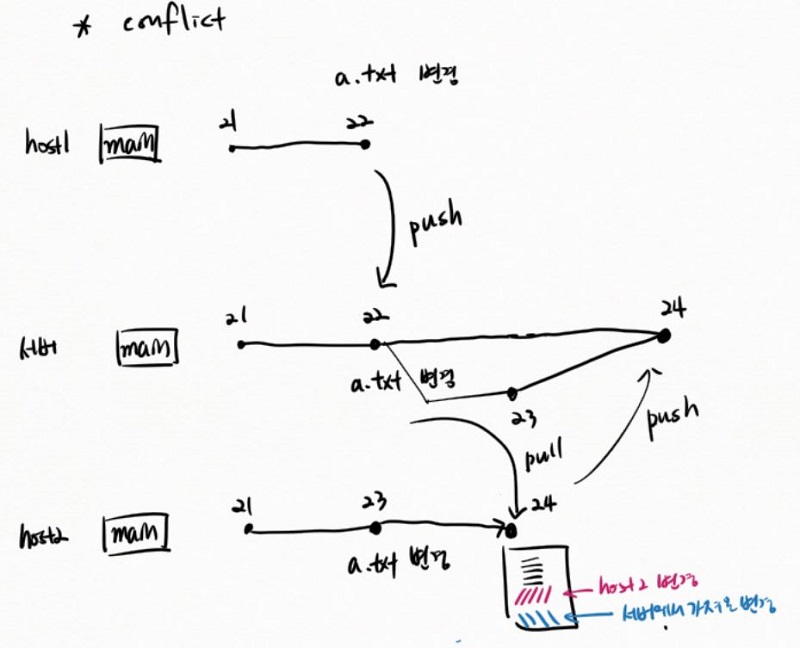 * conflict
a.txt 변경
host1 main 21 22
push
서버 main 21 22 24
a.txt 변경
23
push
pull
host2 main 21 23 24
a.txt 변경
host2 변경
서버에서 가져온 변경